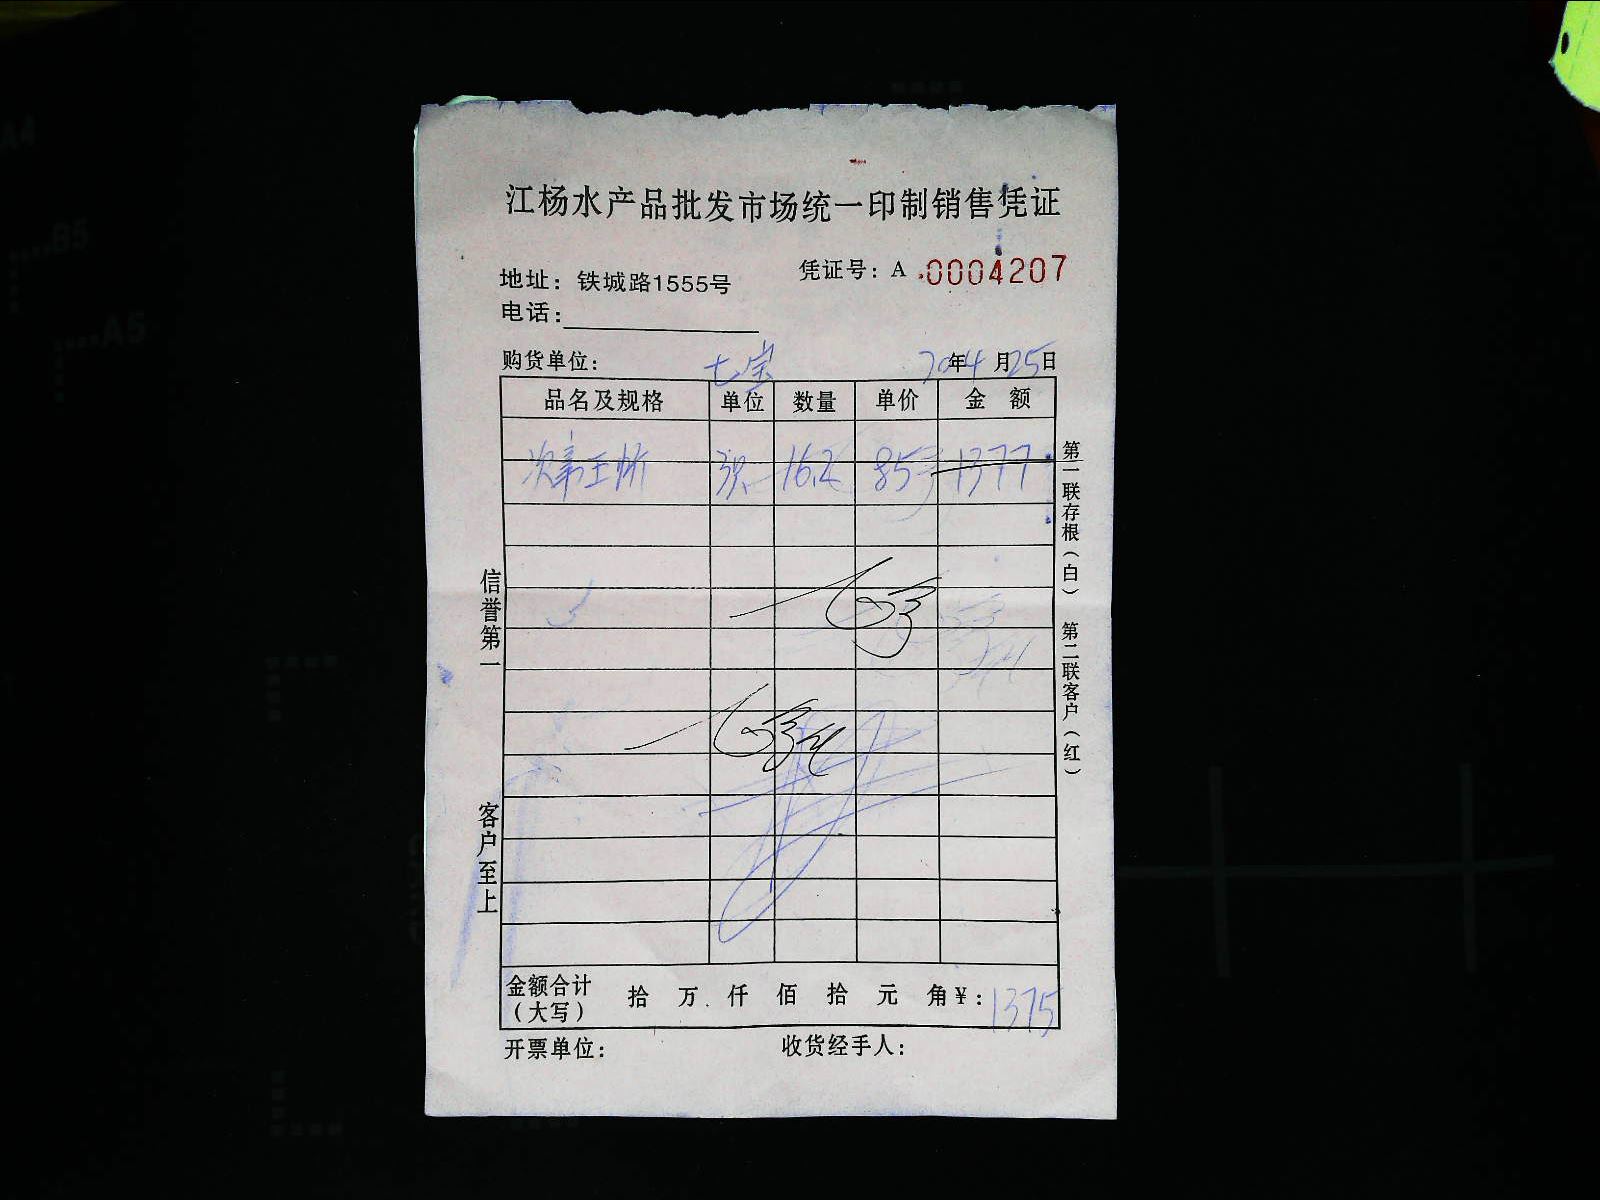 江杨水产品批发市场统一印制销售凭证
凭证号：A .0004207
地址：铁城路1555号
电话：
购货单位： 七宝 20年4月25日
品名及规格 单位 数量 单价 金额
16.2 85 1377
第一联存根（白） 第二联客户（红）
信誉第一
客户至上
金额合计（大写） 拾 万 仟 佰 拾 元 角 ¥：1375
开票单位： 收货经手人：